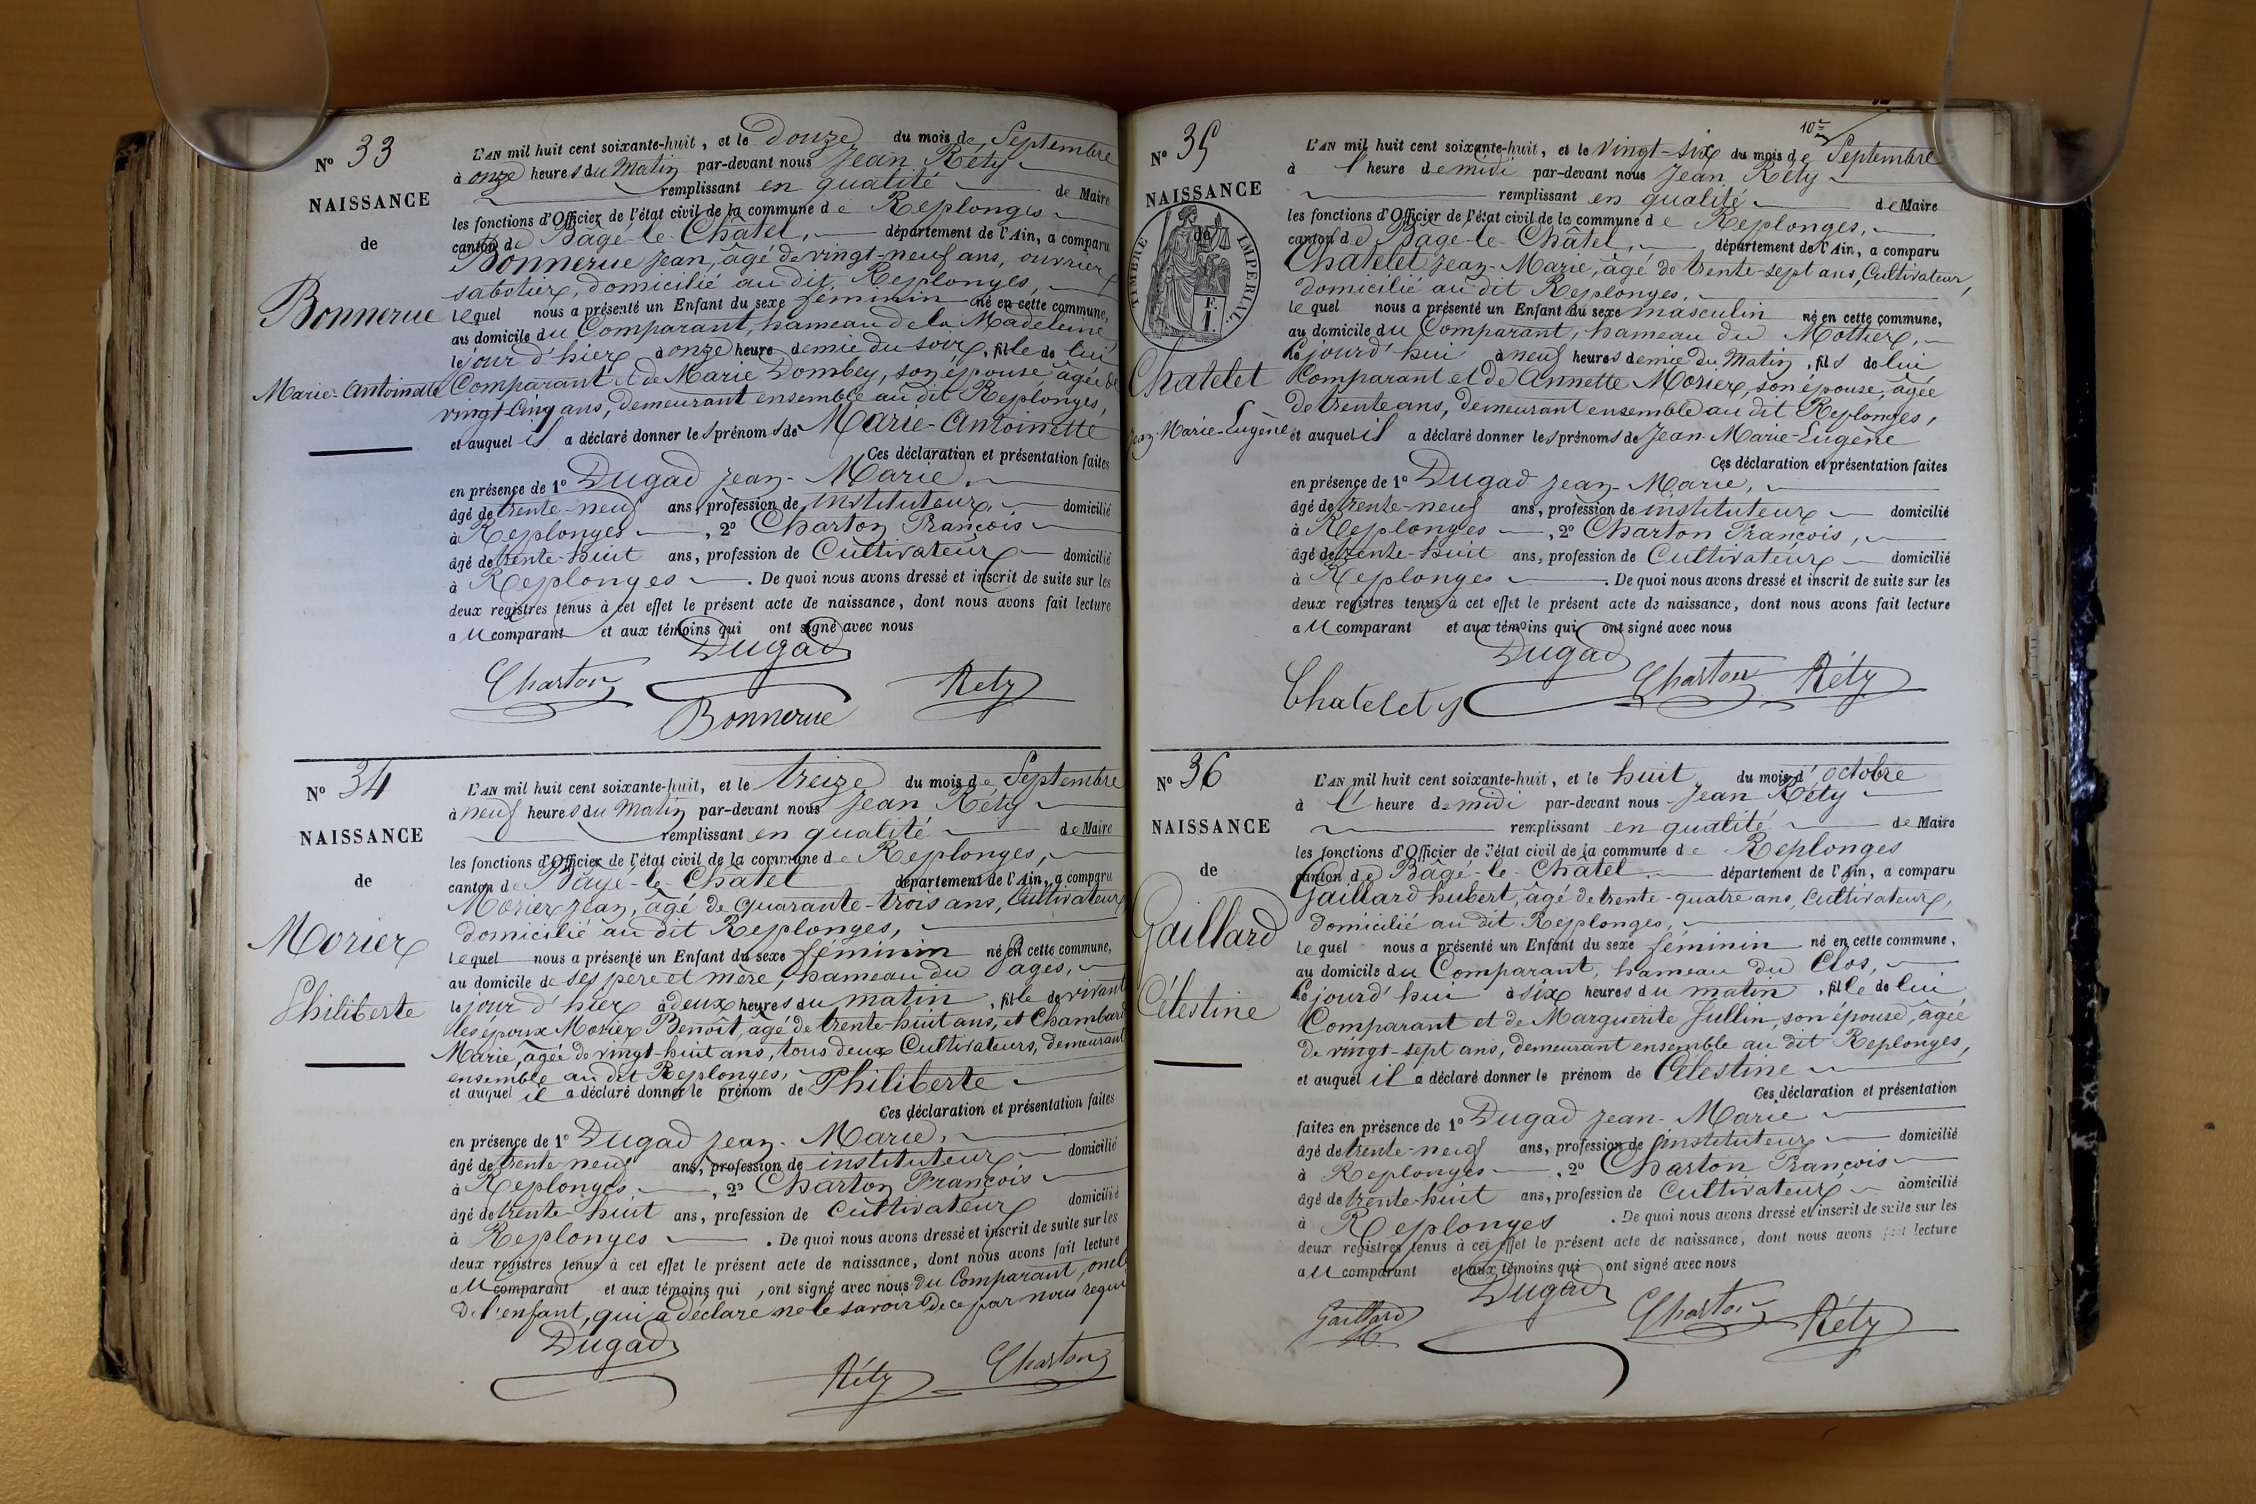 N° 33
NAISSANCE
de
Bonnerue
Marie-Antoinette
L'AN mil huit cent soixante-huit, et le douze du mois de Septembre
à onze heures du Matin par-devant nous Jean Réty
remplissant en qualité de Maire
les fonctions d'Officier de l'état civil de la commune de Replonges
canton de Bâgé-le-Châtel, département de l'Ain, a comparu
Bonnerue Jean, âgé de vingt-neuf ans, ouvrier
sabotier, domicilié au dit Replonges,
lequel nous a présenté un Enfant du sexe féminin né en cette commune,
au domicile du Comparant, hameau de la Madeleine
le jour d'hier à onze heure demie du soir, fille de lui
Comparant et de Marie Dombey, son épouse âgée de
vingt-cinq ans, demeurant ensemble au dit Replonges,
et auquel il a déclaré donner les prénoms de Marie-Antoinette
Ces déclaration et présentation faites
en présence de 1° Dugad Jean-Marie,
âgé de trente-neuf ans, profession de instituteur domicilié
à Replonges, 2° Charton François
âgé de trente-huit ans, profession de Cultivateur domicilié
à Replonges. De quoi nous avons dressé et inscrit de suite sur les
deux registres tenus à cet effet le présent acte de naissance, dont nous avons fait lecture
au comparant et aux témoins qui ont signé avec nous
Dugad
Charton Réty
Bonnerue
N° 34
NAISSANCE
de
Morier
Philiberte
L'AN mil huit cent soixante-huit, et le treize du mois de Septembre
à neuf heures du Matin par-devant nous Jean Réty
remplissant en qualité de Maire
les fonctions d'Officier de l'état civil de la commune de Replonges,
canton de Bâgé-le-Châtel département de l'Ain, a comparu
Morier Jean, âgé de quarante-trois ans, Cultivateur
domicilié au dit Replonges,
lequel nous a présenté un Enfant du sexe féminin né en cette commune,
au domicile de ses père et mère, hameau du Pages,
le jour d'hier à deux heures du matin, fille de vivant
les époux Morier Benoît, âgé de trente-huit ans, et Chambard
Marie, âgée de vingt-huit ans, tous deux Cultivateurs, demeurant
ensemble au dit Replonges,
et auquel il a déclaré donner le prénom de Philiberte
Ces déclaration et présentation faites
en présence de 1° Dugad Jean-Marie,
âgé de trente-neuf ans, profession de instituteur domicilié
à Replonges, 2° Charton François
âgé de trente-huit ans, profession de Cultivateur domicilié
à Replonges. De quoi nous avons dressé et inscrit de suite sur les
deux registres tenus à cet effet le présent acte de naissance, dont nous avons fait lecture
au comparant et aux témoins qui, ont signé avec nous du Comparant, oncle
de l'enfant, qui a déclaré ne le savoir de ce par nous requis
Dugad
Réty Charton
10e
N° 35
NAISSANCE
de
TIMBRE IMPERIAL
Chatelet
Jean-Marie-Eugène
L'AN mil huit cent soixante-huit, et le vingt-six du mois de Septembre
à l'heure de midi par-devant nous Jean Réty
remplissant en qualité de Maire
les fonctions d'Officier de l'état civil de la commune de Replonges,
canton de Bâgé-le-Châtel, département de l'Ain, a comparu
Chatelet Jean-Marie, âgé de trente-sept ans, Cultivateur,
domicilié au dit Replonges,
lequel nous a présenté un Enfant du sexe masculin né en cette commune,
au domicile du Comparant, hameau du Mottier,
le jourd'hui à neuf heures demie du Matin, fils de lui
Comparant et de Annette Morier, son épouse, âgée
de trente ans, demeurant ensemble au dit Replonges,
et auquel il a déclaré donner les prénoms de Jean-Marie-Eugène
Ces déclaration et présentation faites
en présence de 1° Dugad Jean-Marie,
âgé de trente-neuf ans, profession de instituteur domicilié
à Replonges, 2° Charton François,
âgé de trente-huit ans, profession de Cultivateur domicilié
à Replonges. De quoi nous avons dressé et inscrit de suite sur les
deux registres tenus à cet effet le présent acte de naissance, dont nous avons fait lecture
au comparant et aux témoins qui ont signé avec nous
Dugad
Chatelet Charton Réty
N° 36
NAISSANCE
de
Gaillard
Célestine
L'AN mil huit cent soixante-huit, et le huit du mois d'octobre
à l'heure de midi par-devant nous Jean Réty
remplissant en qualité de Maire
les fonctions d'Officier de l'état civil de la commune de Replonges
canton de Bâgé-le-Châtel, département de l'Ain, a comparu
Gaillard hubert, âgé de trente-quatre ans, cultivateur,
domicilié au dit Replonges,
lequel nous a présenté un Enfant du sexe féminin né en cette commune,
au domicile du Comparant, hameau du Clos,
le jourd'hui à six heures du matin, fille de lui
Comparant et de Marguerite Jullin, son épouse, âgée
de vingt-sept ans, demeurant ensemble au dit Replonges,
et auquel il a déclaré donner le prénom de Célestine
Ces déclaration et présentation
faites en présence de 1° Dugad Jean-Marie
âgé de trente-neuf ans, profession de instituteur domicilié
à Replonges, 2° Charton François
âgé de trente-huit ans, profession de Cultivateur domicilié
à Replonges. De quoi nous avons dressé et inscrit de suite sur les
deux registres tenus à cet effet le présent acte de naissance, dont nous avons fait lecture
au comparant et aux témoins qui ont signé avec nous
Dugad
Gaillard Charton Réty